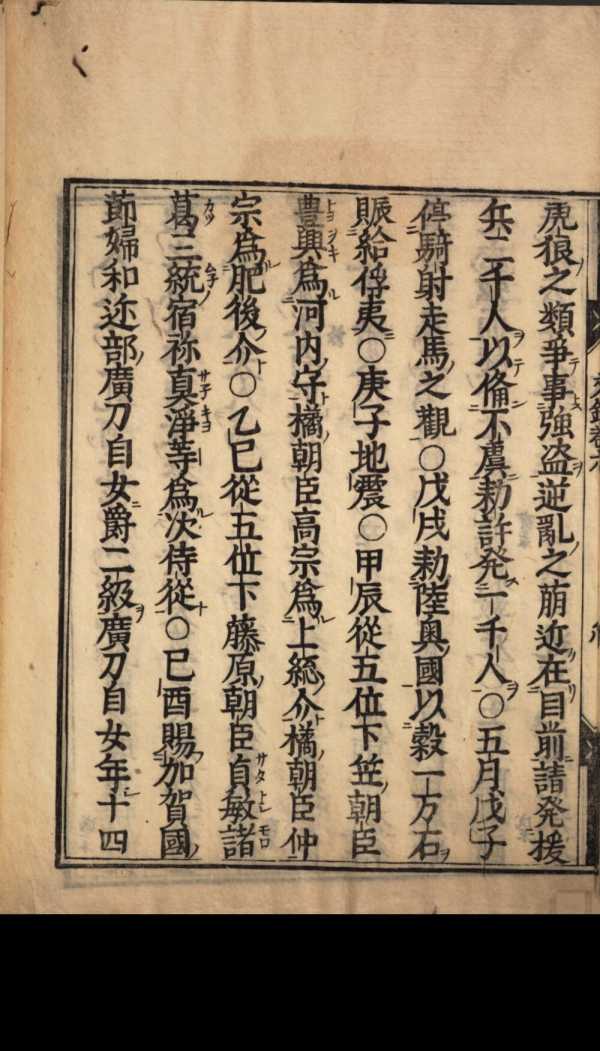 虎狼之類爭事強盗逆亂之萠近在目前請発援
兵二千人以俻不虞勅許発一千人〇五月戊子
停騎射走馬之觀〇戊戌勅陸奥國以穀一万石
賑給俘夷〇庚子地震〇甲辰從五位下笠朝臣
豊興爲河内守橘朝臣高宗爲上総介橘朝臣仲
宗爲肥後介〇乙巳從五位下藤原朝臣貞敏諸
葛三統宿祢真淨等爲次侍從〇己酉賜加賀國
莭婦和迩部廣刀自女爵二級廣刀自女年十四